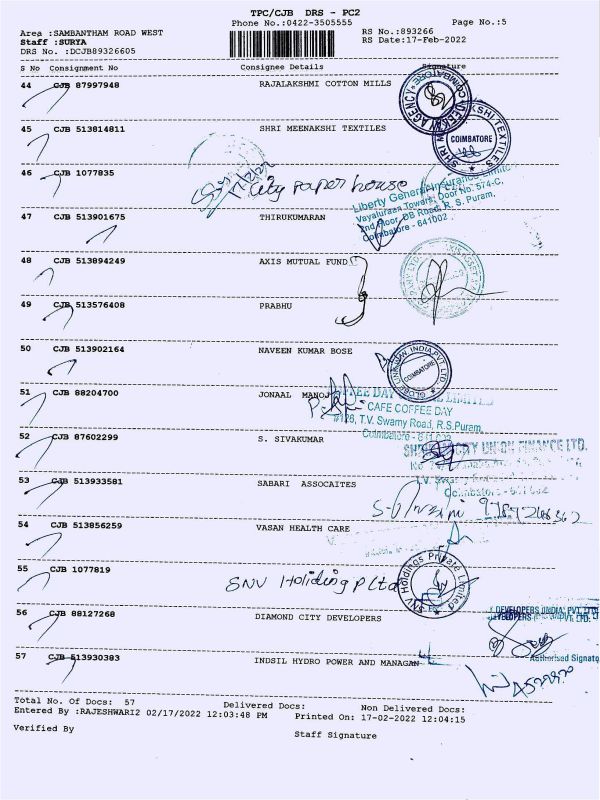 TPC/CJB DRS - PC2
Phone No.:0422-3505555 Page No.:5
Area :SAMBANTHAM ROAD WEST RS No.:893266
Staff :SURYA RS Date:17-Feb-2022
DRS No. :DCJB89326605
S No Consignment No Consignee Details Signature
44 CJB 87997948 RAJALAKSHMI COTTON MILLS
45 CJB 513814811 SHRI MEENAKSHI TEXTILES
COIMBATORE
46 CJB 1077835 City paper house
Liberty General Insurance Limited
Vayaluraan Towers, Door No. 574-C,
2nd Floor, DB Road, R. S. Puram,
Coimbatore - 641002
47 CJB 513901675 THIRUKUMARAN
48 CJB 513894249 AXIS MUTUAL FUND
49 CJB 513576408 PRABHU
50 CJB 513902164 NAVEEN KUMAR BOSE
COIMBATORE
51 CJB 88204700 JONAAL MANOJ
COFFEE DAY GLOBAL LIMITED
CAFE COFFEE DAY
#126, T.V. Swamy Road, R.S.Puram,
Coimbatore - 641 002
52 CJB 87602299 S. SIVAKUMAR
CITY UNION FINANCE LTD.
53 CJB 513933581 SABARI ASSOCAITES
T.V. Swamy
Coimbatore - 641 002
54 CJB 513856259 VASAN HEALTH CARE
55 CJB 1077819 SNV Holiding P Ltd
SNV Holdings Private Limited
56 CJB 88127268 DIAMOND CITY DEVELOPERS
DEVELOPERS (INDIA) PVT. LTD.
Authorised Signato
57 CJB 513930383 INDSIL HYDRO POWER AND MANAGAN
Total No. Of Docs: 57 Delivered Docs: Non Delivered Docs:
Entered By :RAJESHWARI2 02/17/2022 12:03:48 PM Printed On: 17-02-2022 12:04:15
Verified By Staff Signature